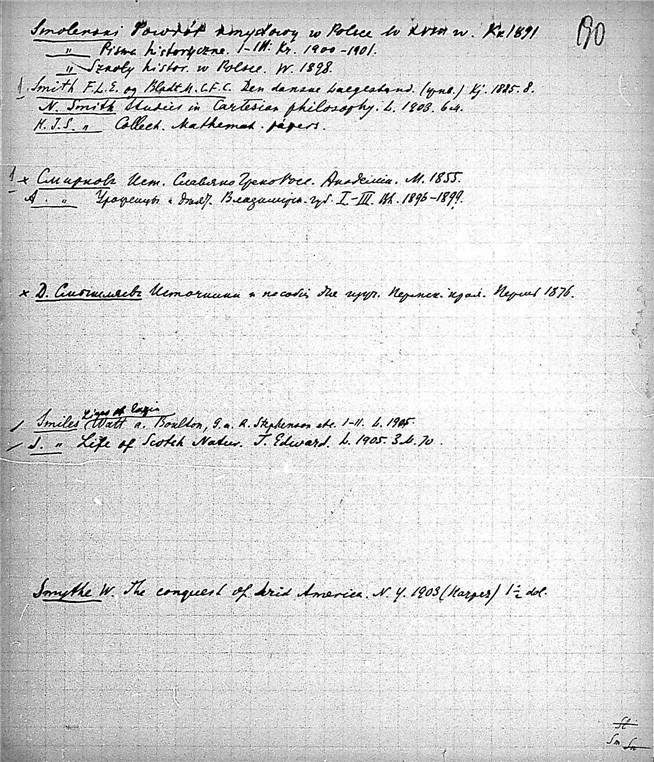 190
Smolenski Powrót umysłowy w Polsce w XVIII w. Kr 1891
„ Pisma historyczne. I–III. Kr. 1900–1901.
„ Szkoły histor. w Polsce. W. 1898.
Smith F.L.E. og Bladt M.C.F.C. Den danske Laegestand. Kj. 1885. 8.
N. Smith Studies in Cartesian philosophy. L. 1903.
H.J.S. „ Collect. Mathemat. papers.
× Смирновъ Ист. Славяно Греко Росс. Академіи. М. 1855.
А. „ Уроженцы и дѣят. Владимірск. губ. I–III. Вл. 1896–1899.
× Д. Смышляевъ Источники и пособія для изуч. Пермск. края. Пермь 1876.
Lives of Engin
Smiles Watt a. Boulton, G. a. R. Stephenson etc. I–II. L. 1905
S. „ Life of Scotch Natur. T. Edward. L. 1905.
Smythe W. The conquest of Arid America. N.Y. 1903 (Harper) 1½ dol.
St
Sm Sn